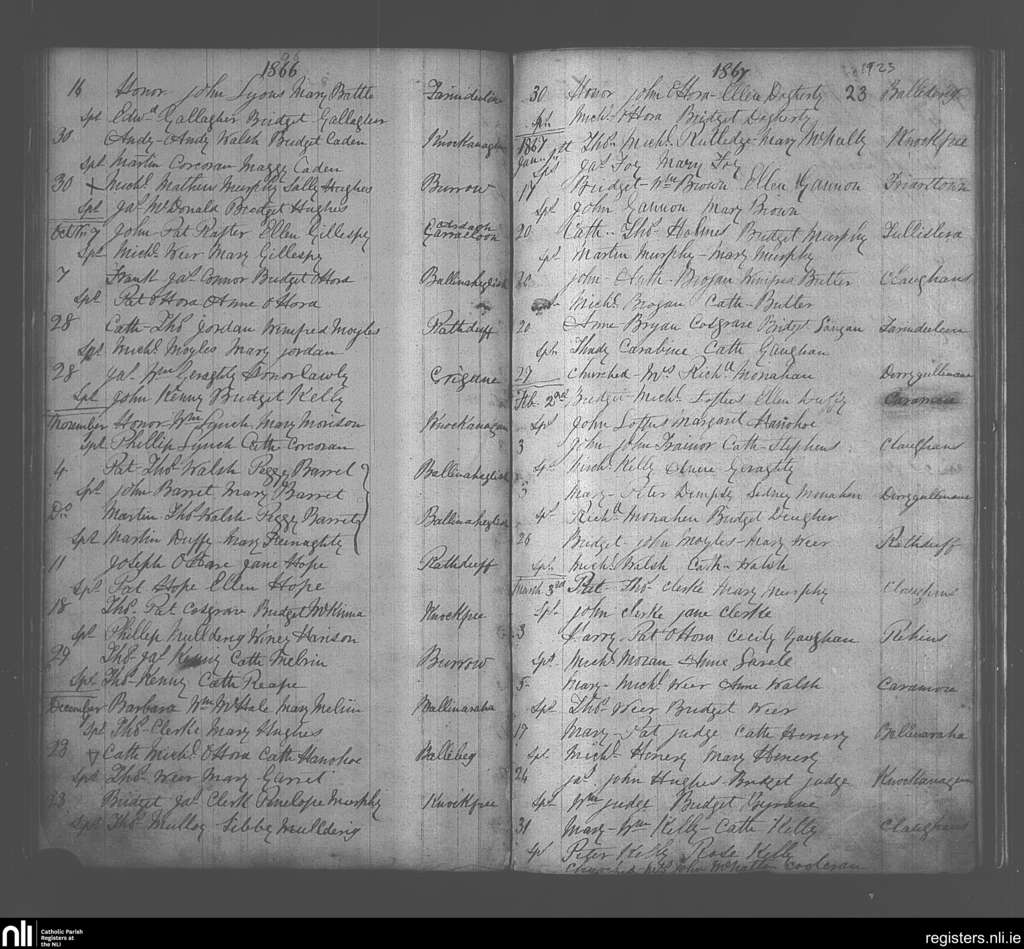 1866
16 Honor John Lyons Mary Battle
Spt Edwd Gallagher Bridget Gallagher
30 Andy - Andy Walsh Bridget Caden Knockanagh
Spt Martin Corcoran Maggy Caden
30 x Michl Mathew Murphy Sally Hughes Burrow
Spt Jas McDonald Bridget Hughes
John - Pat Rafter Ellen Gillespey Carracloon
Spt Michl Weer Mary Gillespy
7 Frank Jas Connor Bridget OHora Ballinaheglish
Spt Pat OHora Anne OHora
28 Cath - Thos Jordan Winifred Moyles Rathduff
Spt Michl Moyles Mary Jordan
28 Jas Wm Geraghty Honor Lawly
Spt John Kenny Bridget Kelly
November Honor - Wm Lynch Mary Morison Knockanagh
Spt Phillip Lynch Cath Corcoran
4 Pat Thos Walsh Peggy Barret Ballinaheglish
Spt John Barret Mary Barret
Do Martin Thos Walsh - Peggy Barrett Ballinaheglish
Spt Martin Duffy - Mary
11 Joseph Jane Hope Rathduff
Spt Pat Hope Ellen Hope
18 Thos Pat Cosgrave Bridget McKinna Knockfree
Spt Phillip Mulldering Winey Harison
29 Thos Jas Kenny Cath Melvin Burrow
Spt Thos Kenny Cath Reape
December Barbara Wm McHale Mary Melvin Ballinaraha
Spt Thos Clerke Mary Hughes
23 Cath Michl OHora Cath Hanohoe Ballebeg
Spt Thos Weer Mary Garret
23 Bridget Jas Clerk Penelope Murphy Knockfree
Spt Thos Mulloy Sibby Mulldering
1867
30 Honor John OHora - Ellen Dogherty 23
Spt Michl OHora Bridget Dogherty
1867 Thos Michl Rutledge Mary McNulty Knockfree
Spt Jas Foy Mary Foy
17 Bridget - Wm Brown Ellen Gannon Friarstown
Spt John Gannon Mary Brown
20 Cath - Thos Holmes Bridget Murphy
Spt Martin Murphy - Mary Murphy
John - Brogan Winifred Butler Claughans
Michl Brogan Cath - Butler
20 Anne Bryan Cosgrave Bridget
Spt Thady Carabine Cath Gaughan
29 Churched - Mrs Richd Monahan Derrygullinane
Feb 2nd Bridget - Michl Loftus Ellen Duffy Caramore
Spt John Loftus Margaret Hanohoe
3 John John Trainor Cath - Stephens Claughans
Spt Michl Kelly Anne Geraghty
5 Mary - Peter Dempsy Sidney Monahan Derrygullinane
Spt Richd Monahan Bridget
26 Bridget John Moyles - Mary Weer Rathduff
Spt Michl Walsh Cath - Walsh
March 3rd Pat - Thos Clerke Mary Murphy Claughans
Spt John Clerke Jane Clerke
3 Harry - Pat OHora Cecily Gaughan Rehins
Spt Michl Moran Anne
5 Mary - Michl Weer Anne Walsh Caramore
Spt Thos Weer Bridget Weer
17 Mary - Pat Judge Cath Henery Ballinaraha
Spt Michl Henery Mary Henery
24 Jas John Hughes - Bridget Judge Knockanagh
Spt Wm Judge Bridget
31 Mary - Wm Kelly - Cath Kelly Claughans
Spt Peter Kelly Rose Kelly
nli Catholic Parish
Registers at
the NLI
registers.nli.ie